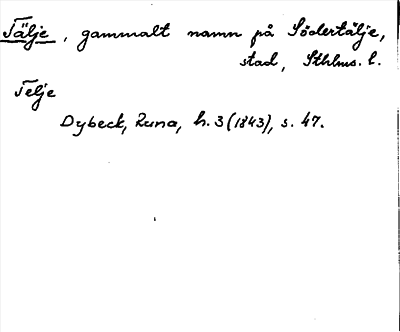 Tälje, gammalt namn på Södertälje,
stad, Sthlms. l.
Telje
Dybeck, Runa, h. 3 (1843), s. 47.